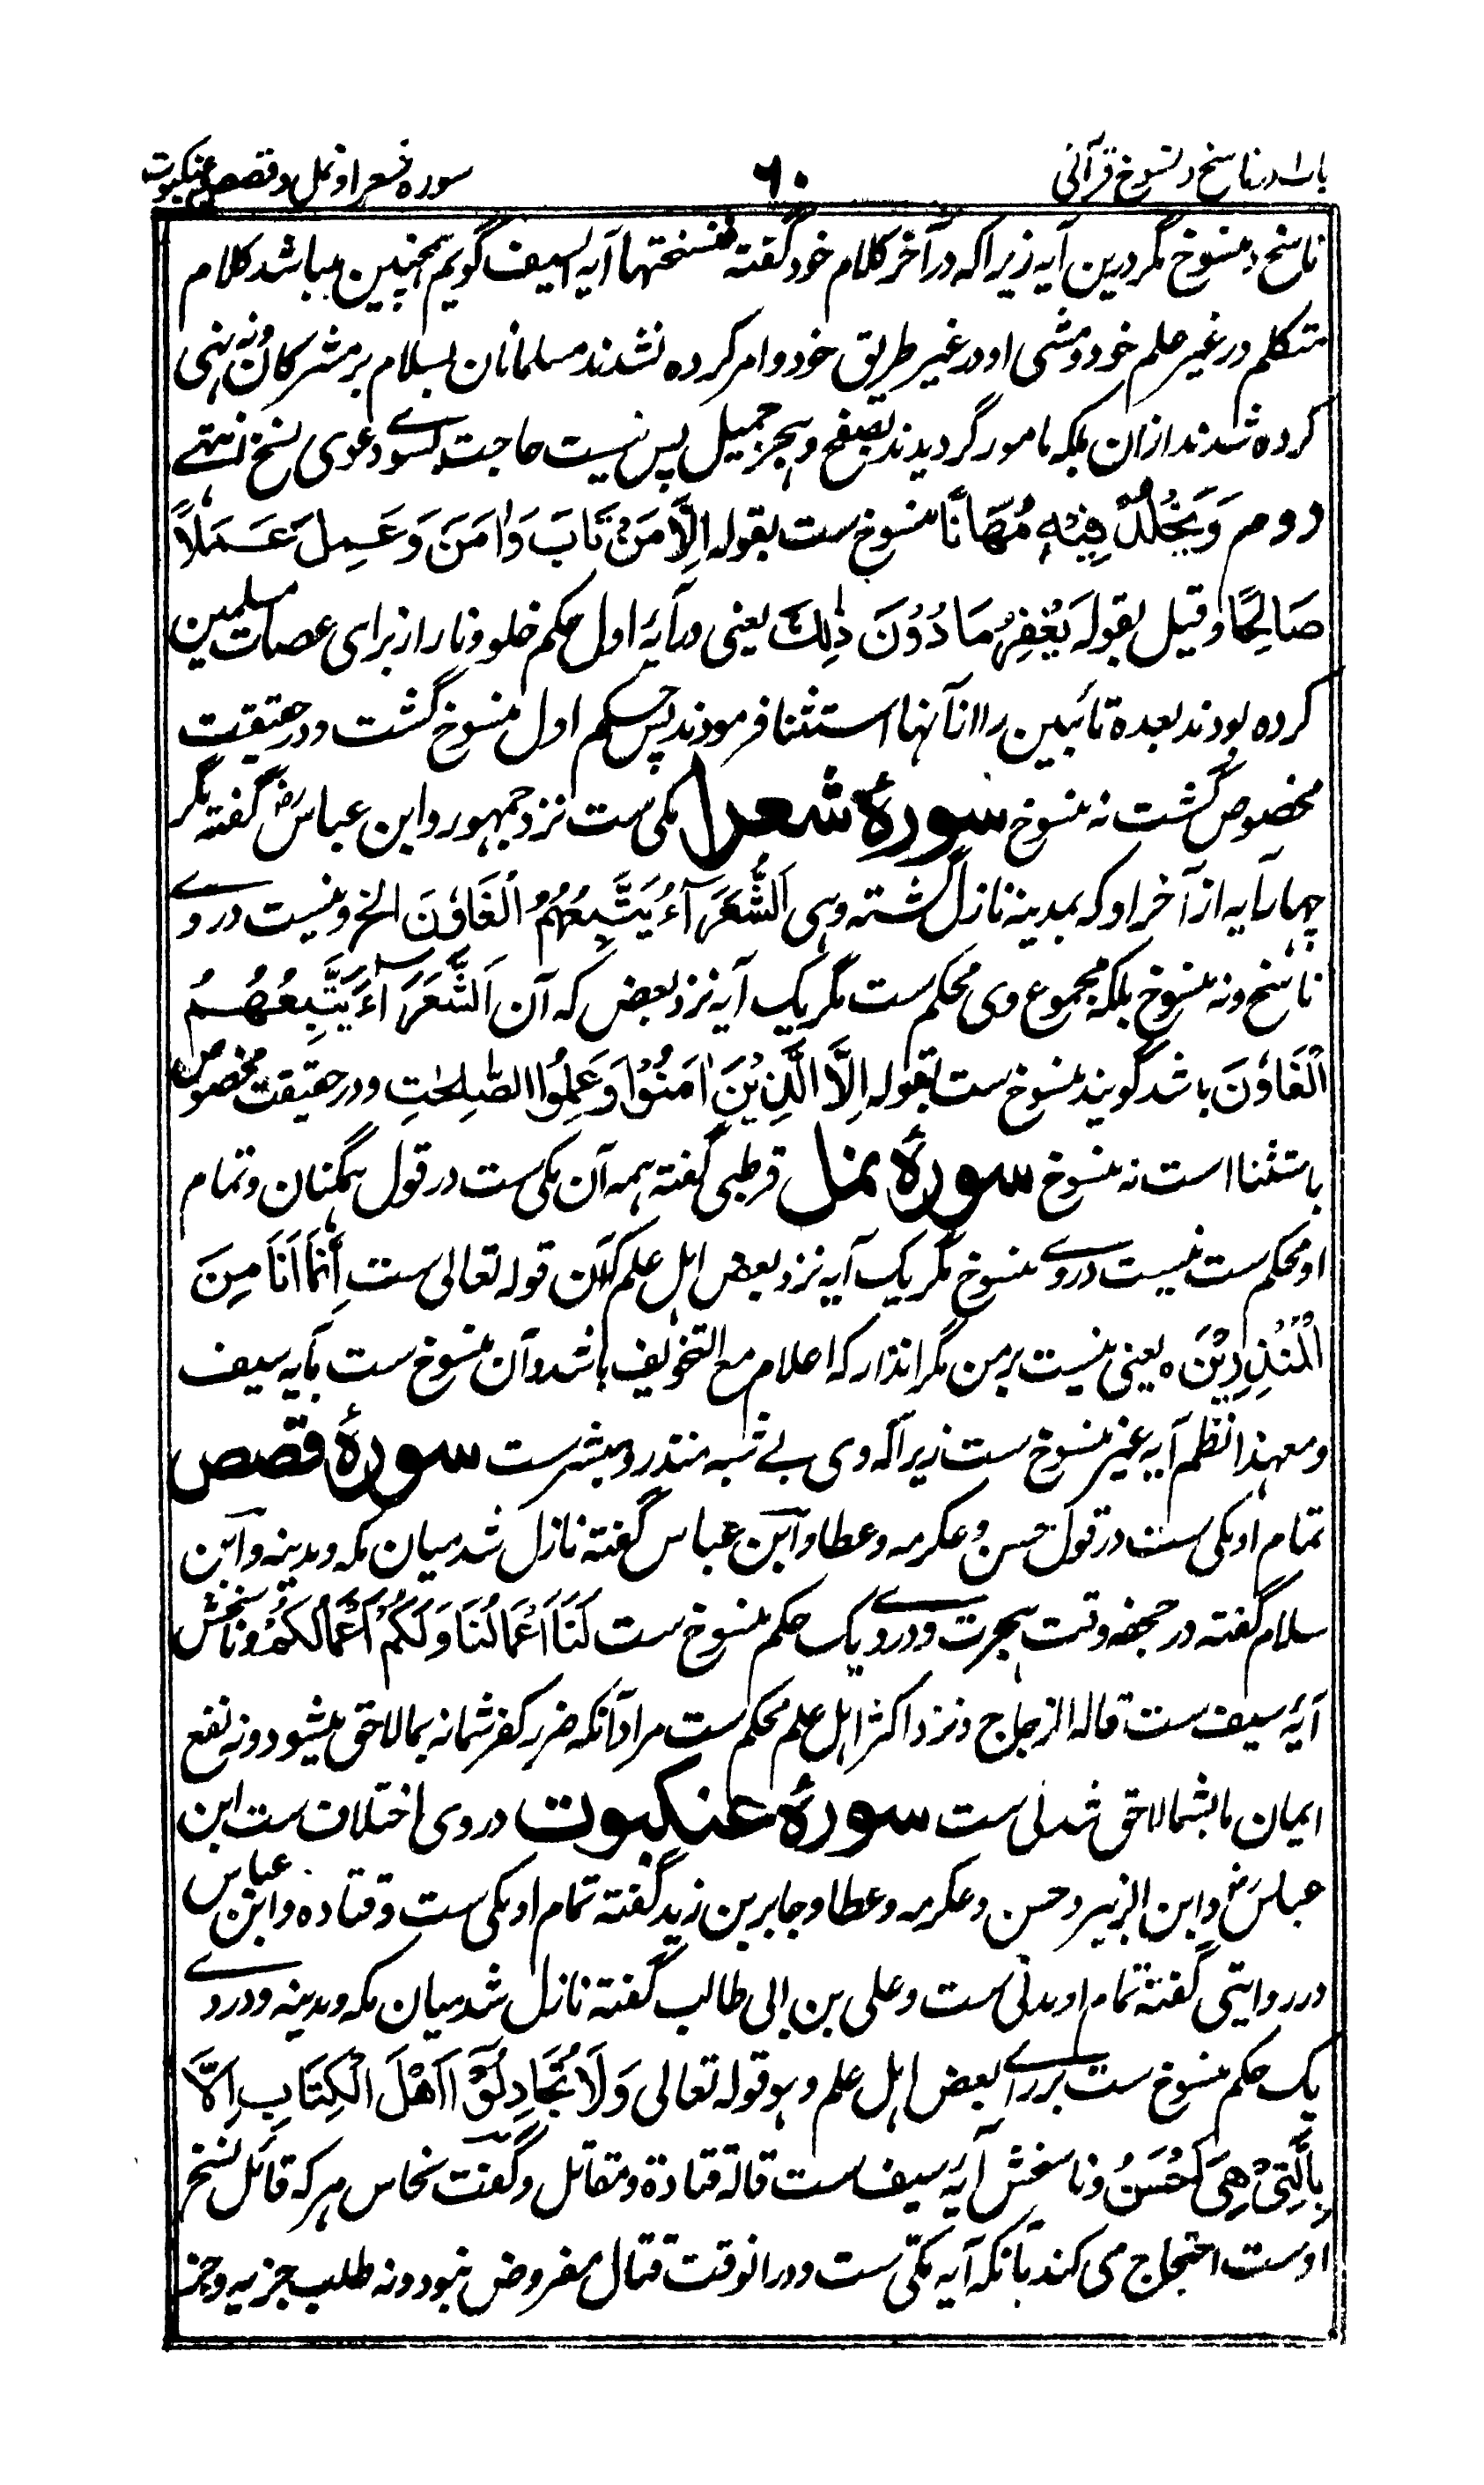 باب اول در ناسخ و منسوخ قرآنی ۶۰ سوره شعرا و نمل و قصص و عنکبوت
ناسخ و منسوخ مگر درین آیه زیرا که در آخر کلام خود گفته فنسختها آیه السیف گویم همچنین میباشد کلام
متکلم در غیر علم خود و مشی او در غیر طریق خود و امر کرده نشدند مسلمانان بسلام بر مشرکان و نه نهی
کرده شدند از ان بلکه مامور گردیدند بصفح و هجر جمیل پس نیست حاجت بسوے دعوی نسخ انتہے
دوم وَيَخْلُدْ فِيْهٖ مُهَانًا منسوخ ست بقوله اِلَّا مَنْ تَابَ وَاٰمَنَ وَعَمِلَ عَمَلًا
صَالِحًا و قیل بقوله يَغْفِرُ مَا دُوْنَ ذٰلِكَ یعنی در آیهٔ اول حکم خلود نار از برای عصات مسلمین
کرده بودند بعده تائبین را از آنها استثنا فرمودند پس حکم اول منسوخ گشت و در حقیقت
مخصوص گشت نه منسوخ سورهٔ شعرا مکی ست نزد جمهور و ابن عباس رض گفته مگر
چهار آیه از آخر او که بمدینه نازل گشته و هی اَلشُّعَرَآءُ يَتَّبِعُهُمُ الْغَاوٗنَ الخ و نیست در وے
ناسخ و نه منسوخ بلکه مجموع وی محکم ست مگر یک آیه نزد بعض که آن اَلشُّعَرَآءُ يَتَّبِعُهُمُ
الْغَاوٗنَ باشد گویند منسوخ ست بقوله اِلَّا الَّذِيْنَ اٰمَنُوْا وَعَمِلُوا الصّٰلِحٰتِ و در حقیقت مخصوص
باستثنا است نه منسوخ سورهٔ نمل قرطبی گفته همه آن مکی ست در قول همگنان و تمام
او محکم ست نیست در وے منسوخ مگر یک آیه نزد بعض اهل علم که آن قوله تعالی ست اِنَّمَا اَنَا مِنَ
الْمُنْذِرِيْنَ ه یعنی نیست بر من مگر انذار که اعلام مع التخویف باشد و آن منسوخ ست بآیه سیف
و معهذا نظم آیه غیر منسوخ ست زیرا که وی بے شبه منذر و مبشر ست سورهٔ قصص
تمام او مکی ست در قول حسن و عکرمه و عطا و ابن عباس گفته نازل شد میان مکه و مدینه و ابن
سلام گفته در جحفه وقت هجرت و در وے یک حکم منسوخ ست لَنَا اَعْمَالُنَا وَلَكُمْ اَعْمَالُكُمْ و ناسخش
آیهٔ سیف ست قاله الزجاج و نزد اکثر اهل علم محکم ست مراد آنکه ضرر کفر شما نه بما لاحق میشود و نه نفع
ایمان ما بشما لاحق شدنی ست سورهٔ عنکبوت در وی اختلاف ست ابن
عباس رض و ابن الزبیر و حسن و عکرمه و عطا و جابر بن زید گفته تمام او مکی ست و قتاده و ابن عباس
در روایتی گفته تمام او مدنی ست و علی بن ابی طالب گفته نازل شد میان مکه و مدینه و در وے
یک حکم منسوخ ست بر راے بعض اهل علم و هو قوله تعالی وَلَا تُجَادِلُوْٓا اَهْلَ الْكِتَابِ اِلَّا
بِالَّتِىْ هِىَ اَحْسَنُ و ناسخش آیهٔ سیف ست قاله قتادة و مقاتل و گفت نحاس هر که قائل نسخ
اوست احتجاج می کند بآنکه آیه مکی ست و در انوقت قتال مفروض نبود و نه طلب جزیه و جز